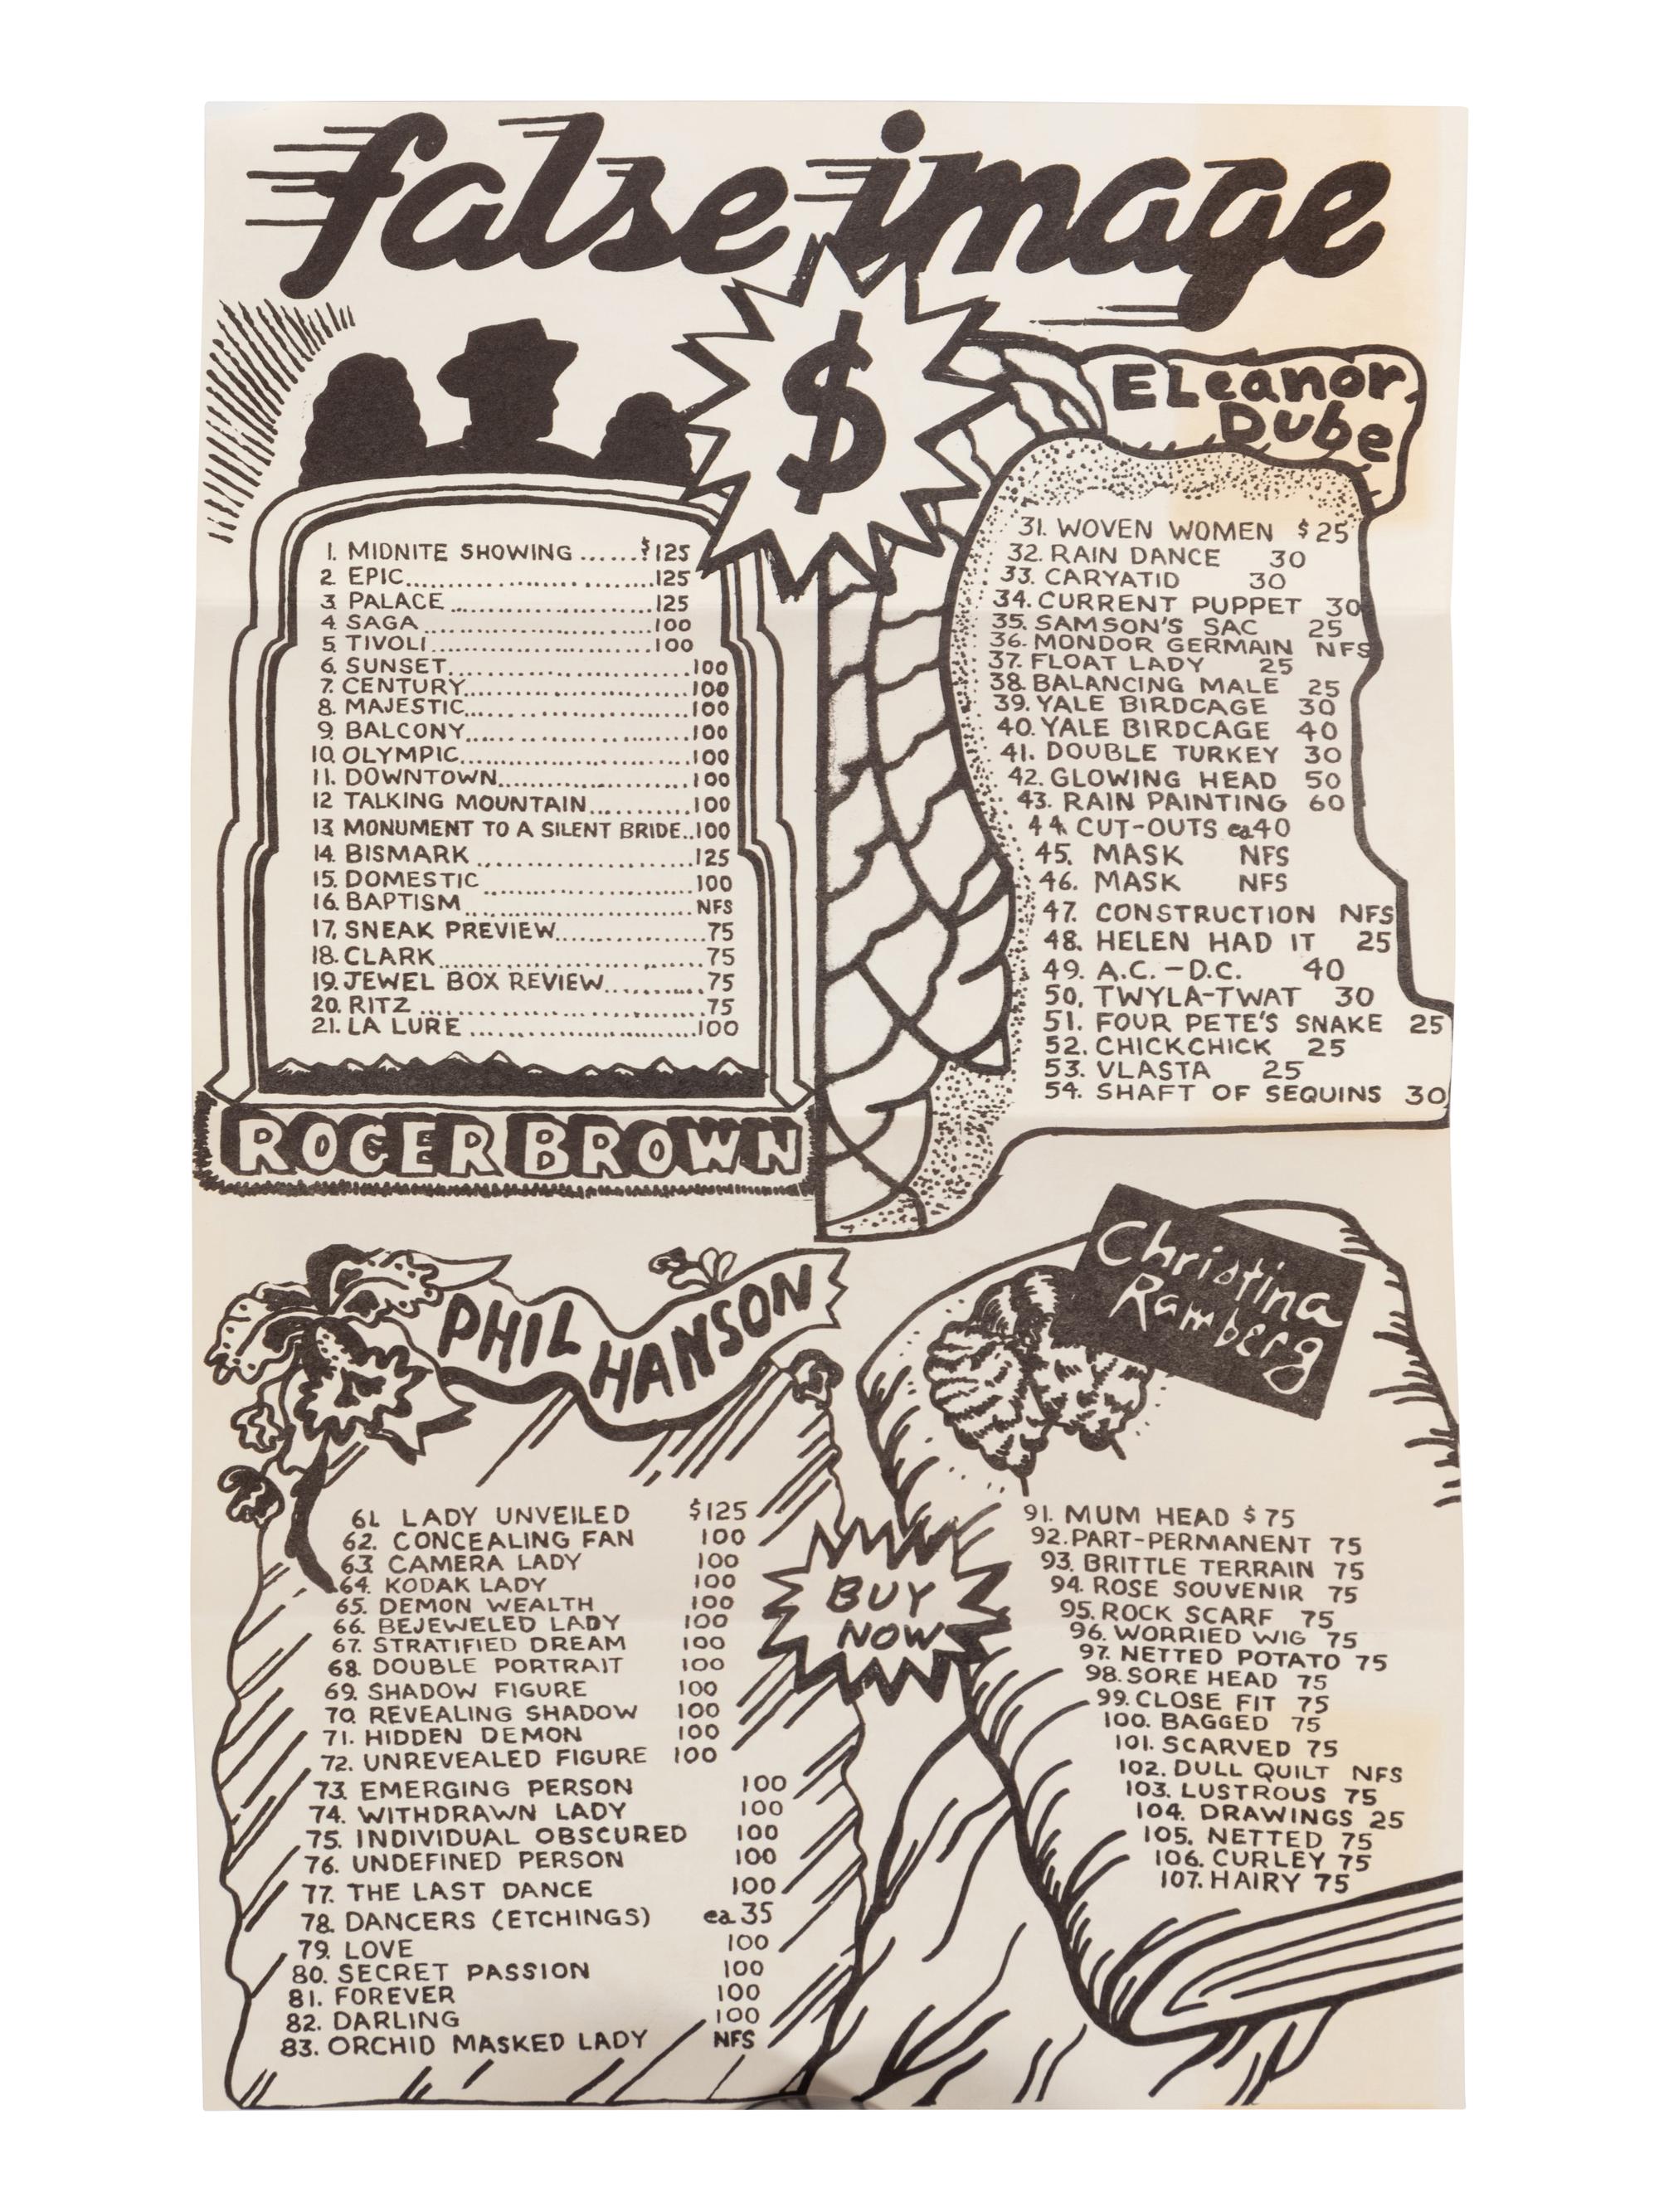 false image
$
1. MIDNITE SHOWING ......$125
2. EPIC..............................125
3. PALACE..........................125
4. SAGA..............................100
5. TIVOLI............................100
6. SUNSET...............................100
7. CENTURY............................100
8. MAJESTIC............................100
9. BALCONY............................100
10. OLYMPIC............................100
11. DOWNTOWN........................100
12 TALKING MOUNTAIN............100
13. MONUMENT TO A SILENT BRIDE..100
14. BISMARK............................125
15. DOMESTIC..........................100
16. BAPTISM............................NFS
17. SNEAK PREVIEW..................75
18. CLARK................................75
19. JEWEL BOX REVIEW............75
20. RITZ..................................75
21. LA LURE............................100
ROGER BROWN
ELeanor
Dube
31. WOVEN WOMEN $25
32. RAIN DANCE 30
33. CARYATID 30
34. CURRENT PUPPET 30
35. SAMSON'S SAC 25
36. MONDOR GERMAIN NFS
37. FLOAT LADY 25
38. BALANCING MALE 25
39. YALE BIRDCAGE 30
40. YALE BIRDCAGE 40
41. DOUBLE TURKEY 30
42. GLOWING HEAD 50
43. RAIN PAINTING 60
44. CUT-OUTS ea40
45. MASK NFS
46. MASK NFS
47. CONSTRUCTION NFS
48. HELEN HAD IT 25
49. A.C. – D.C. 40
50. TWYLA-TWAT 30
51. FOUR PETE'S SNAKE 25
52. CHICKCHICK 25
53. VLASTA 25
54. SHAFT OF SEQUINS 30
PHIL HANSON
61. LADY UNVEILED $125
62. CONCEALING FAN 100
63. CAMERA LADY 100
64. KODAK LADY 100
65. DEMON WEALTH 100
66. BEJEWELED LADY 100
67. STRATIFIED DREAM 100
68. DOUBLE PORTRAIT 100
69. SHADOW FIGURE 100
70. REVEALING SHADOW 100
71. HIDDEN DEMON 100
72. UNREVEALED FIGURE 100
73. EMERGING PERSON 100
74. WITHDRAWN LADY 100
75. INDIVIDUAL OBSCURED 100
76. UNDEFINED PERSON 100
77. THE LAST DANCE 100
78. DANCERS (ETCHINGS) ea.35
79. LOVE 100
80. SECRET PASSION 100
81. FOREVER 100
82. DARLING 100
83. ORCHID MASKED LADY NFS
BUY
NOW
Christina
Ramberg
91. MUM HEAD $75
92. PART-PERMANENT 75
93. BRITTLE TERRAIN 75
94. ROSE SOUVENIR 75
95. ROCK SCARF 75
96. WORRIED WIG 75
97. NETTED POTATO 75
98. SORE HEAD 75
99. CLOSE FIT 75
100. BAGGED 75
101. SCARVED 75
102. DULL QUILT NFS
103. LUSTROUS 75
104. DRAWINGS 25
105. NETTED 75
106. CURLEY 75
107. HAIRY 75